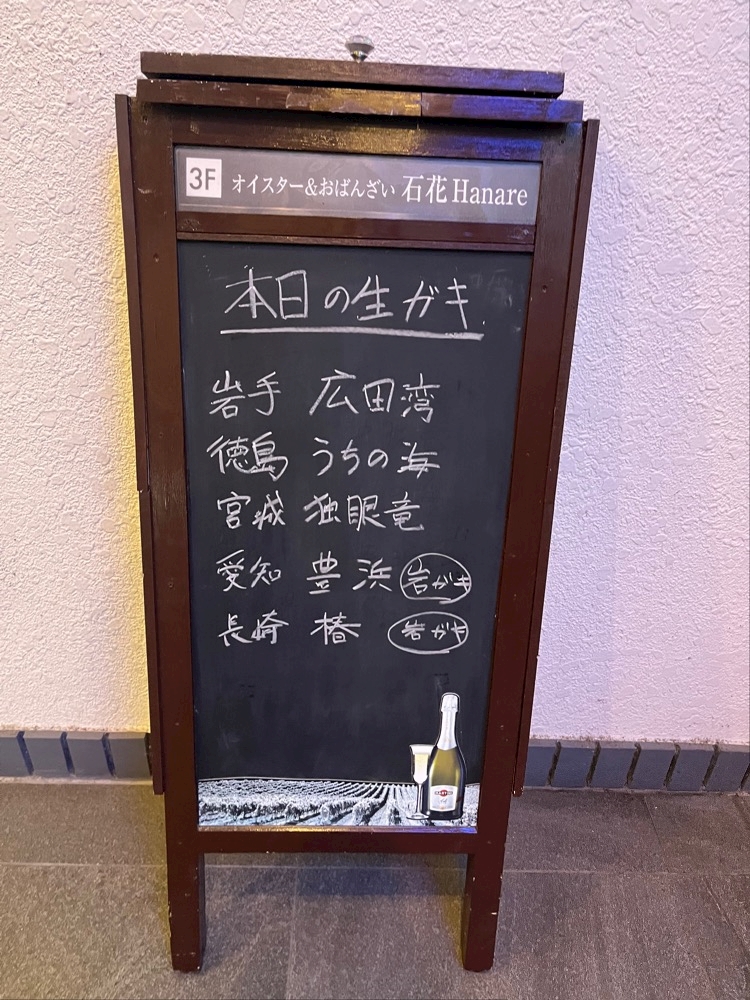 3F オイスター&おばんざい 石花 Hanare
本日の生ガキ
岩手 広田湾
徳島 うちの海
宮城 独眼竜
愛知 豊浜 岩ガキ
長崎 椿 岩ガキ
MARTINI